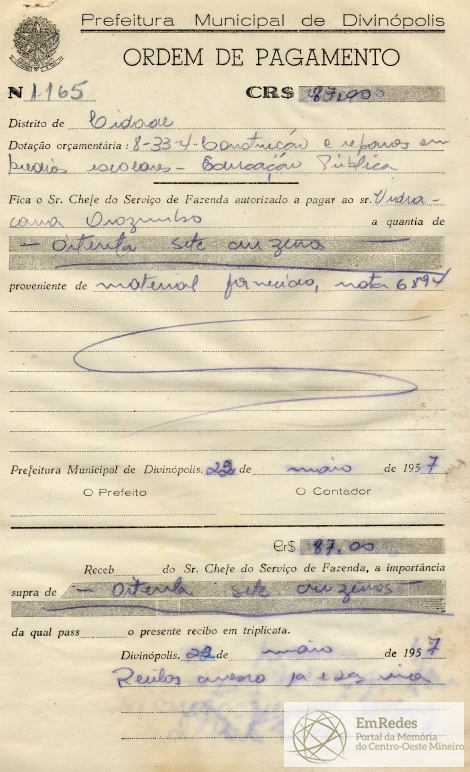 Prefeitura Municipal de Divinópolis
ORDEM DE PAGAMENTO
N 1.165 CR$ 87,00
Distrito de Cidade
Dotação orçamentária: 8-33-4-Construção e reparos em
predios escolares - Educação Pública
Fica o Sr. Chefe do Serviço de Fazenda autorizado a pagar ao sr. Vidra-
çaria a quantia de
- Oitenta sete cruzeiros -
proveniente de material fornecido, nota 6894
Prefeitura Municipal de Divinópolis, de maio de 1957
O Prefeito O Contador
Cr$ 87,00
Receb do Sr. Chefe do Serviço de Fazenda, a importância
supra de - Oitenta sete cruzeiros -
da qual pass o presente recibo em triplicata.
Divinópolis, de maio de 1957
anexo 1a e 2a via
EmRedes
Portal da Memória
do Centro-Oeste Mineiro